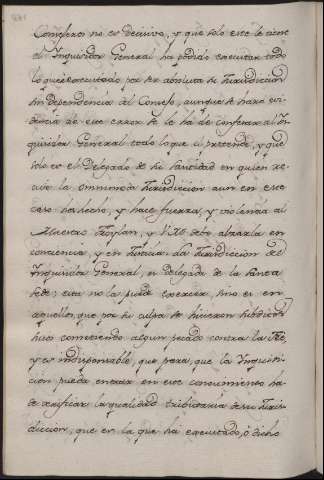 Consejeros no es decisivo, y que solo este le tiene
el Inquisidor General ha podido executar todo
lo que executado por ser absoluta su Jurisdiccion
sin dependencia al Consejo, aunque se hara evi
dencia de este error se le ha de confesar al In
quisidor General todo lo que el pretende, y que
solo es el Delegado de su Santidad en quien re-
side la omnimoda Jurisdiccion aun en este
caso ha hecho, y hace fuerza, y violencia al
Maestro Froylan, y V.M. debe alzarla en
conciencia, y en Justicia. La Jurisdiccion del
Inquisidor General, es delegada de la Santa
Sede; esta no la puede exercer, sino es en
aquellos, que por su culpa se hicieron subditos
suios cometiendo algun pecado contra la Fee,
y es indispensable, que para, que la Inquisi-
cion pueda entrar en este conocimiento ha
de verificar la qualidad atributaria de su Juris-
diccion, que en la que ha egecutado, ó dicho